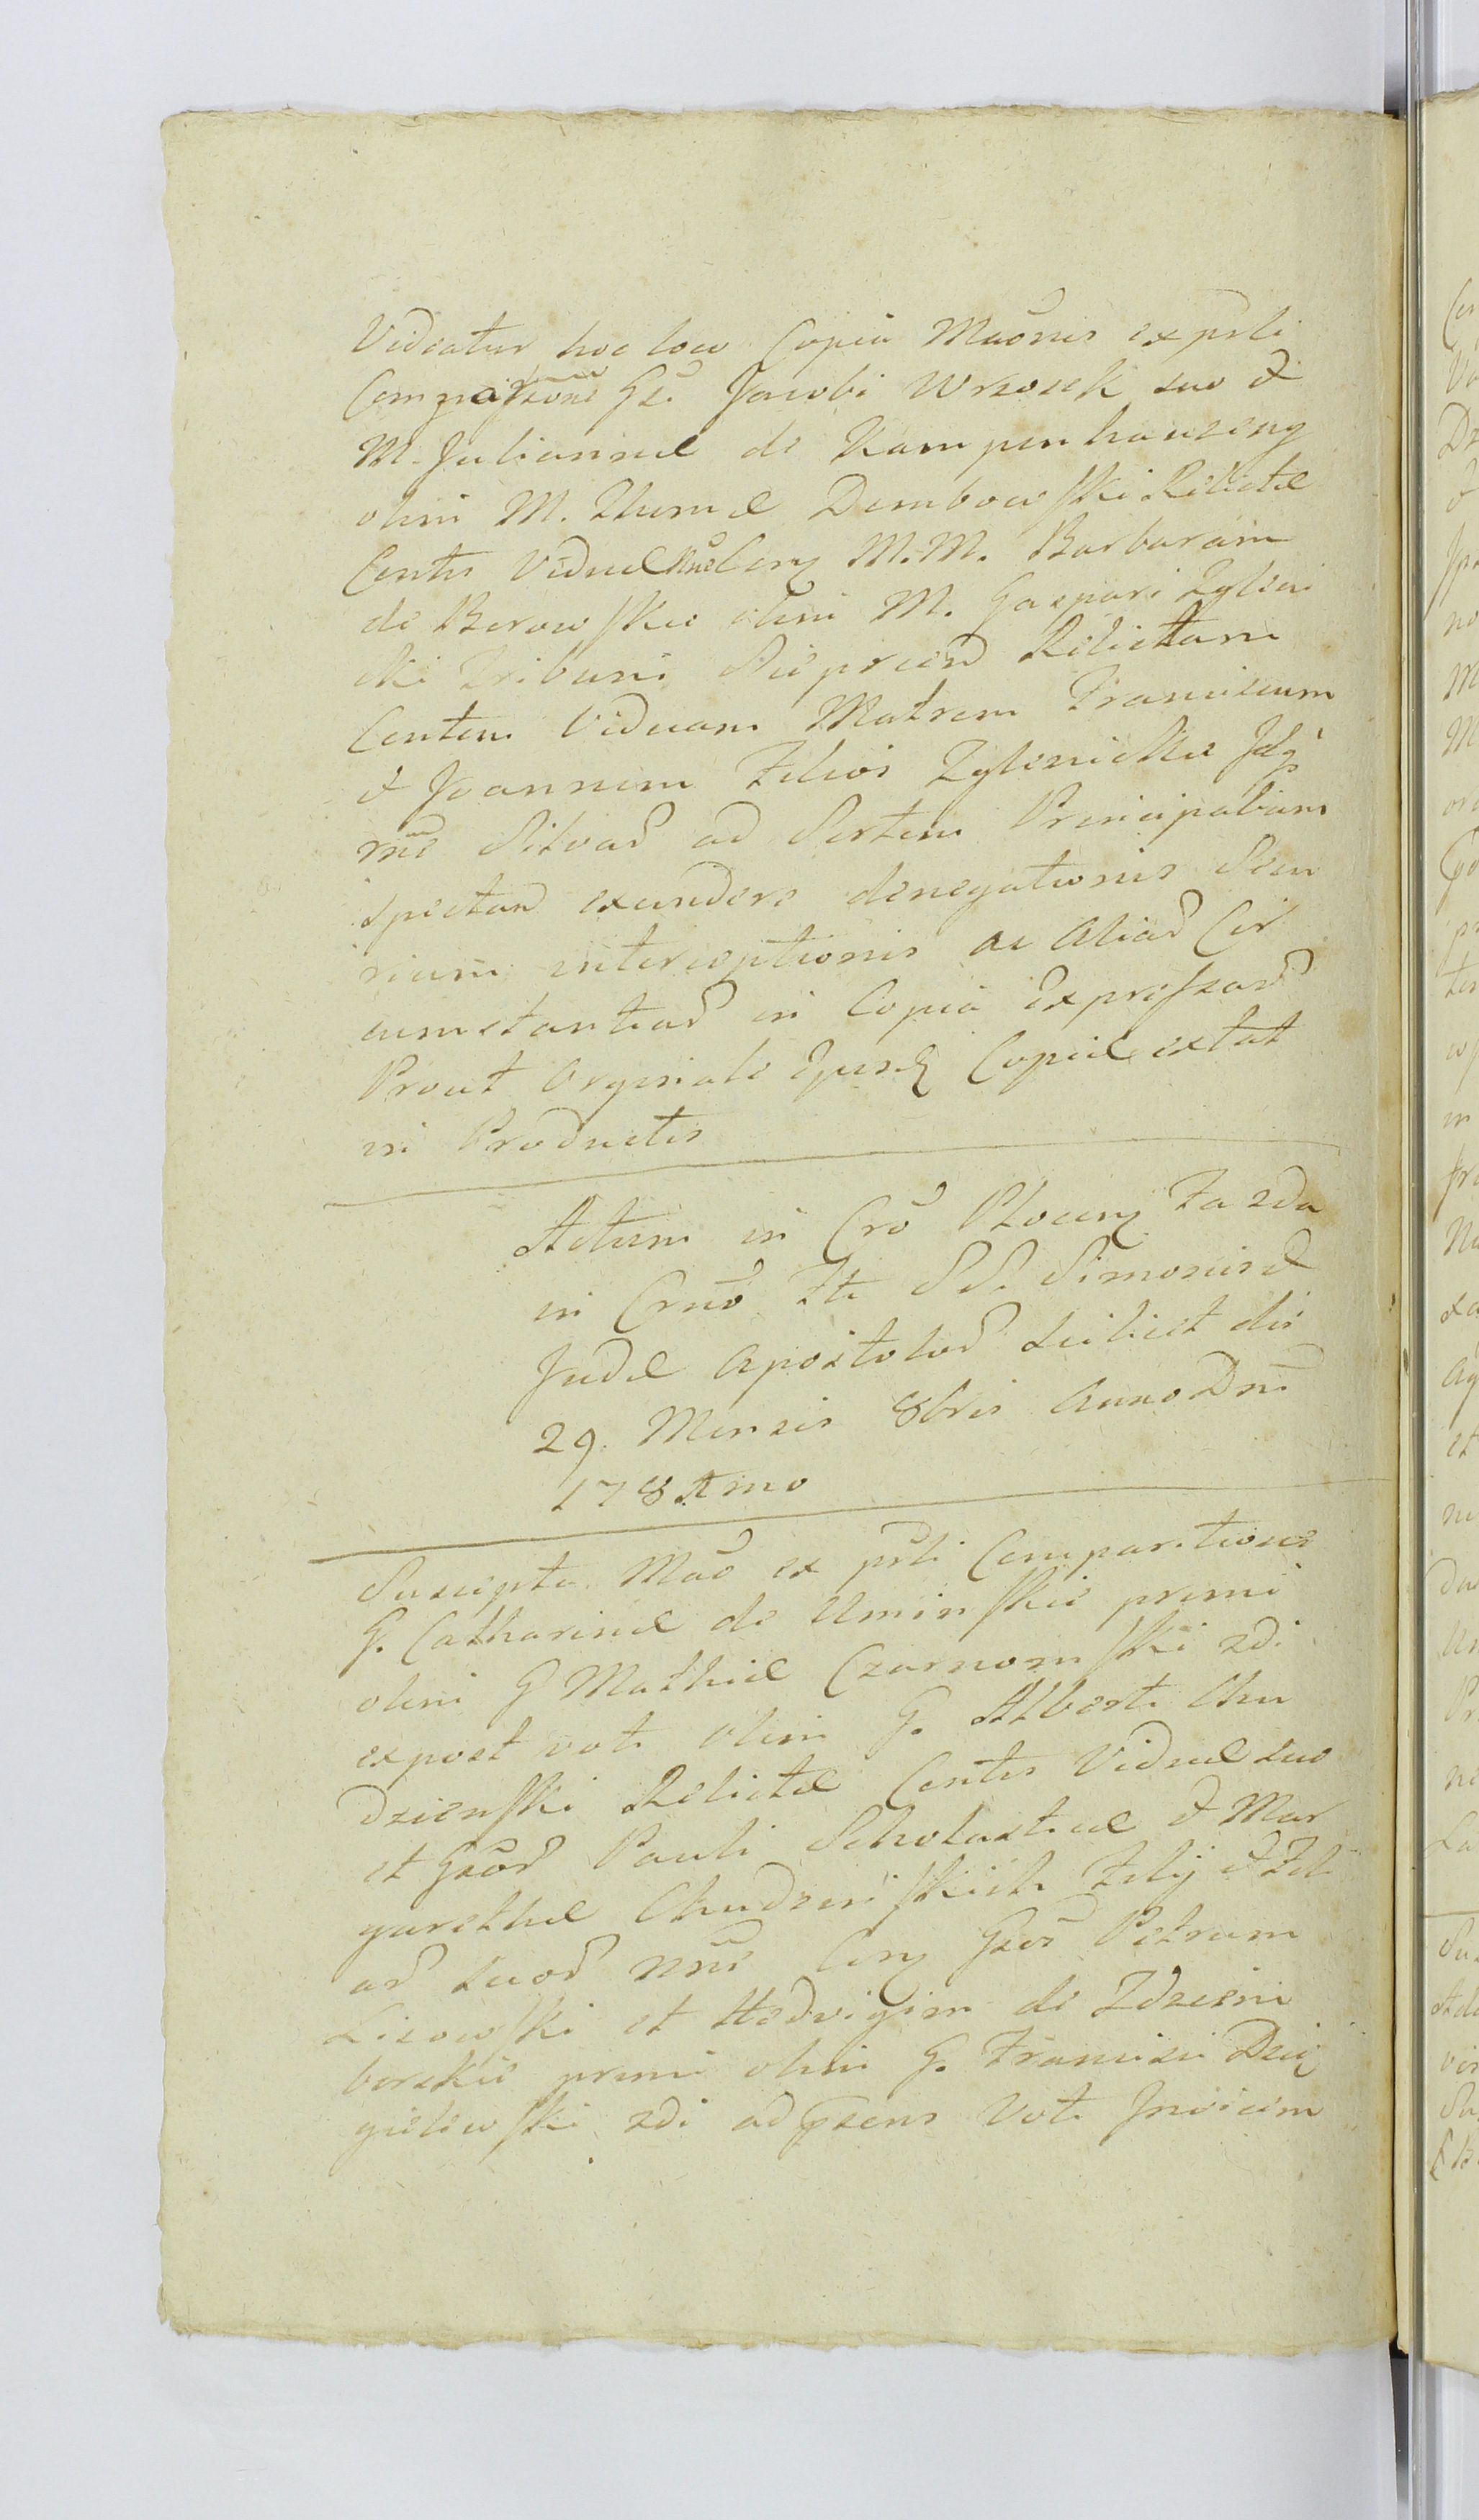 Videatur hoc loco Copia Maõnis ex prli
Comparitione Gsi. Jacobi Wrzosek suo &
M. Juliannæ de Kampenhauzeny
olim M. Thomæ Dembowski Relictæ
Contis Viduæ Nne Con M. M. Barbaram
de Borowskie olim M. Gaspari Zyleni
cki Tribuni Relictam
Contem Viduam Matrem Franciscum
& Joannem Filios Zylenickie
rne Silvað ad Sortem Principalium
spectan exunders denegationis Scru
tinium interceptionis ac aliað Cir
cumstantiað in Copia expressað
Prout Orginale Ejusd Copiæ extat
in Productis
Actum in Crõ Plocen Fa 2da
in Crnõ Fti SS. Simonis &
Judæ Apostoloð scilicet die
29. Mensis 8bris Anno Dni
178
Suscepta Maõ ex prli Comparitione
G. Catharinæ de Uminskie primi
olim G Mathiæ Czarnomski 2di
expost voti olim G. Alberti Chu
dzenski Relictæ Contis Viduæ suo
et Gsoð Pauli Scholasticæ & Mar
garethæ Chudzenskich Filij & Fili
að suoð nne Con Gsos Petrum
Lisowski et Hedvigim de Zdziem
borskie primi olim G. Francisci Dzię
gielewski 2di ad psens Voti Invicem